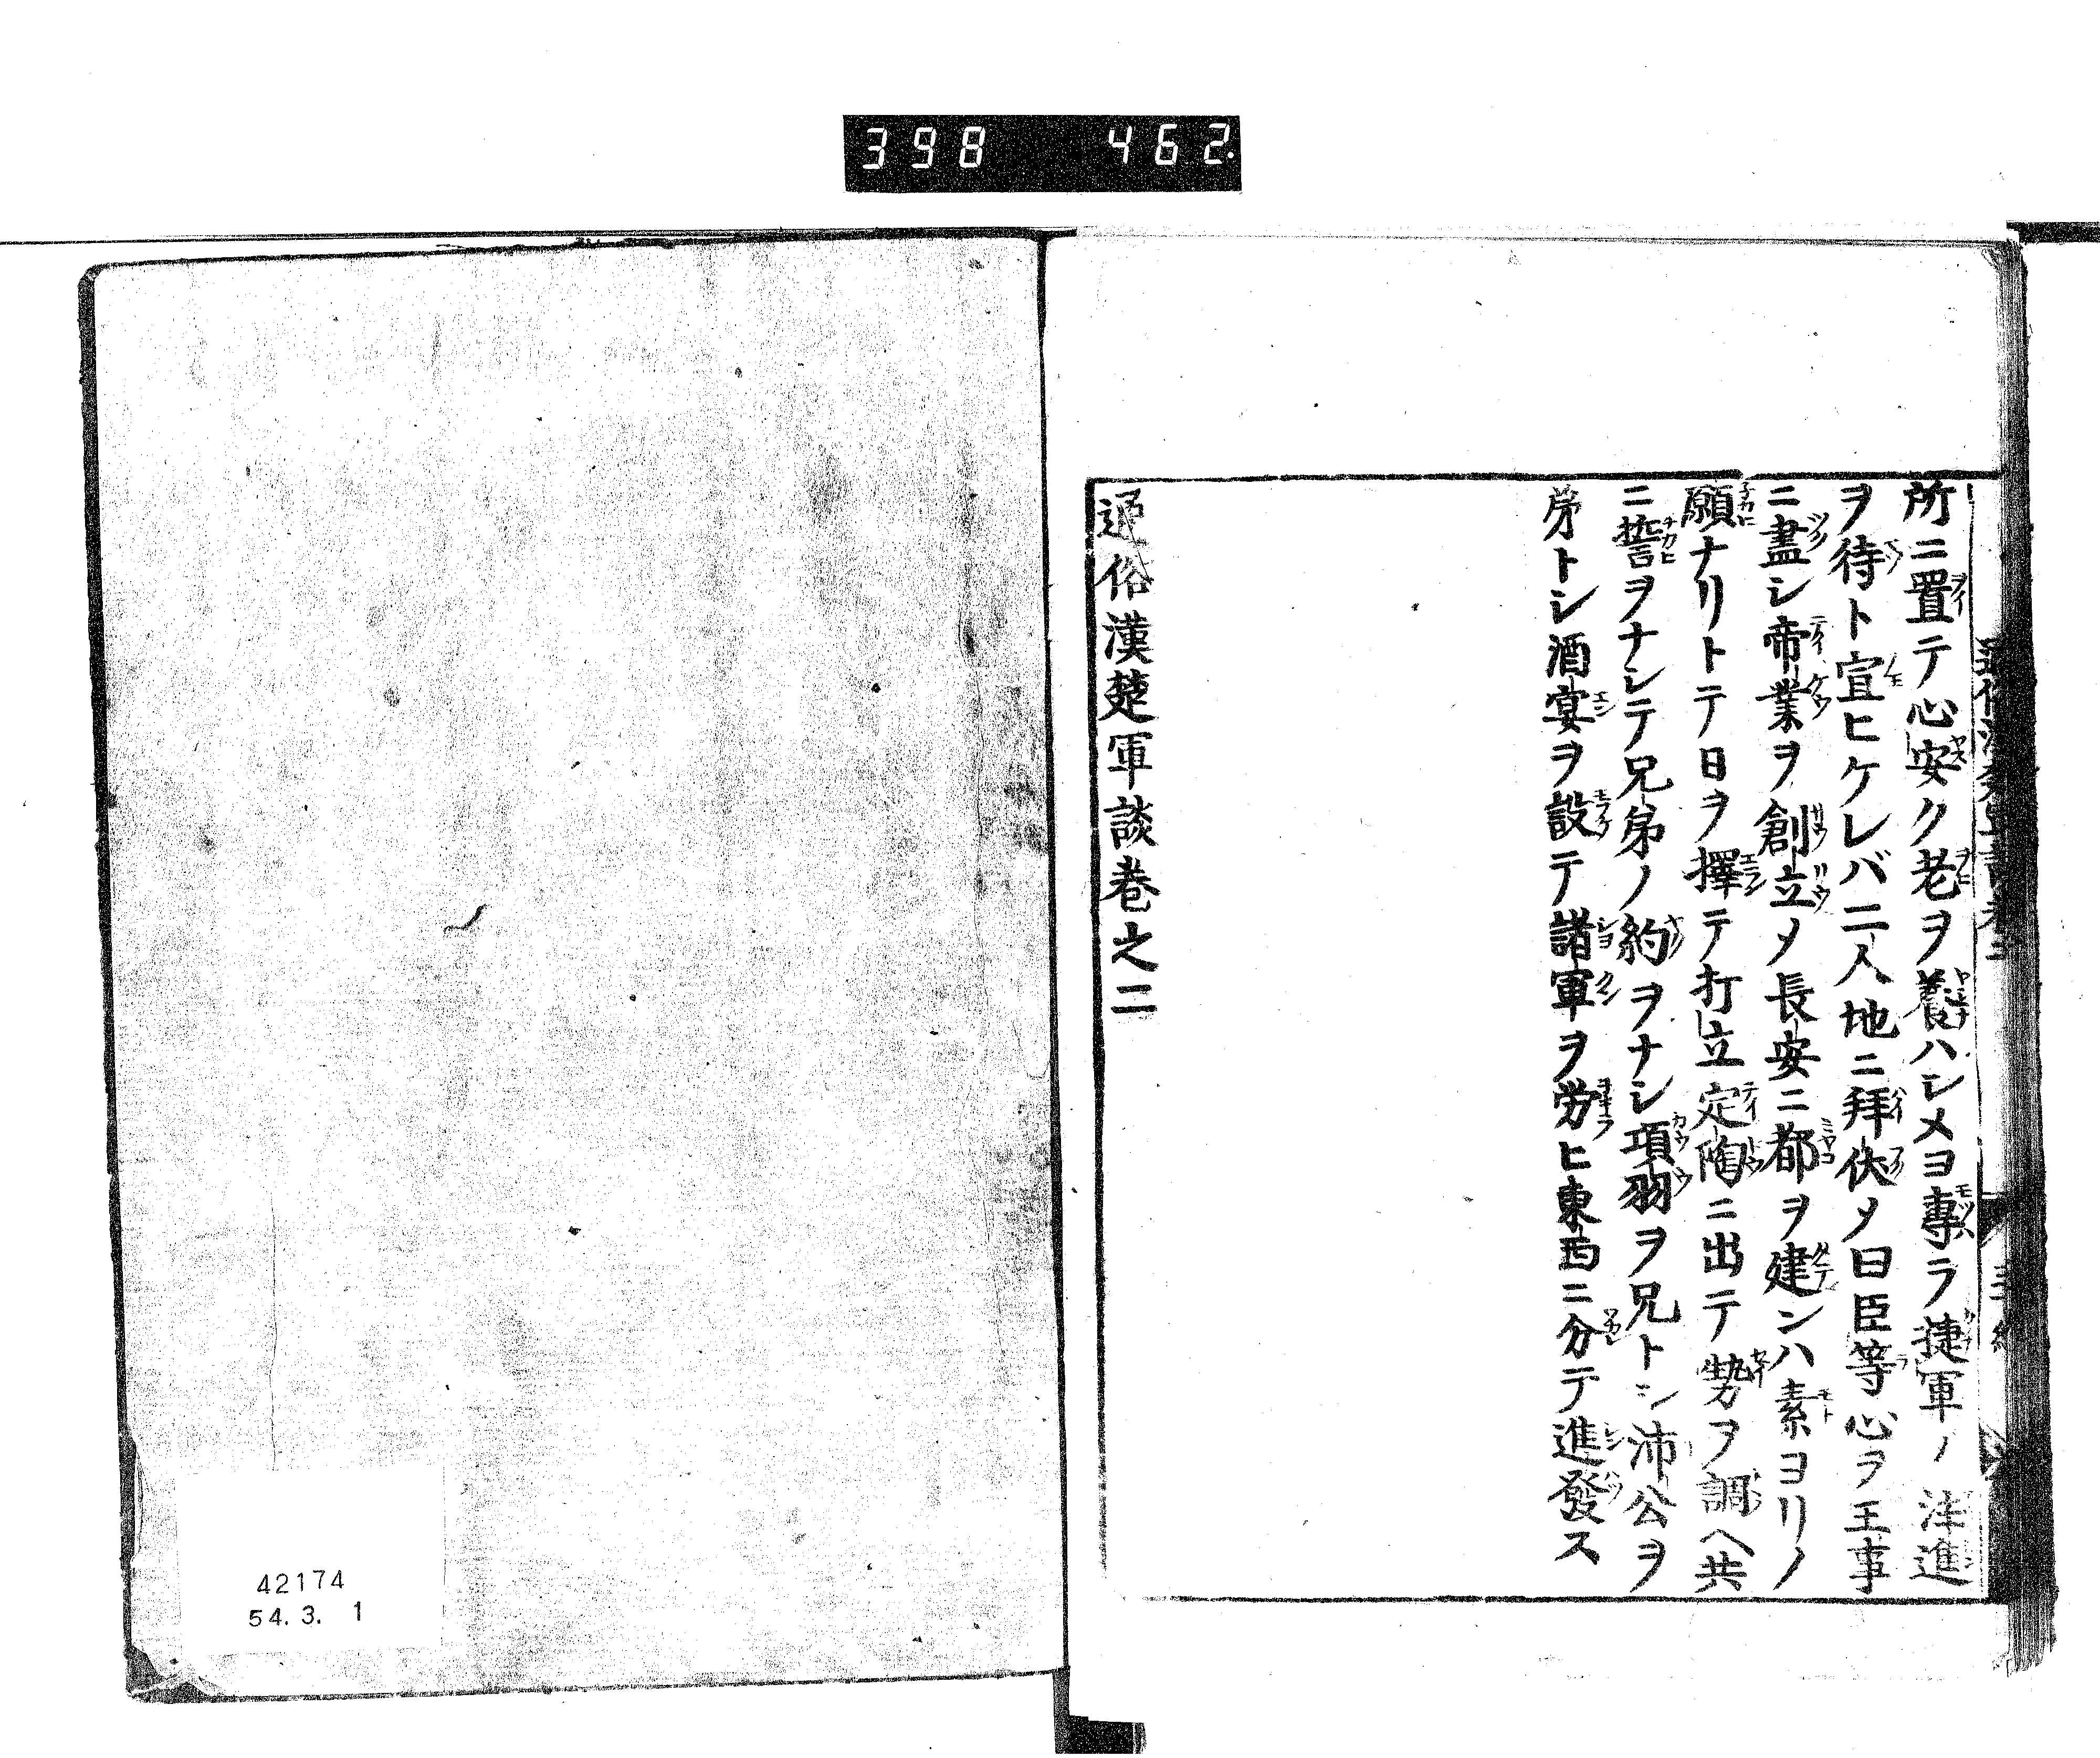 398 462
所ニ置テ心安ク老ヲ養ハシメヨ專ラ捷軍ノ注進
ヲ待ト宣ヒケレバ二人地ニ拜伏メ曰臣等心ヲ王事
ニ盡シ帝業ヲ創立メ長安ニ都ヲ建ンハ素ヨリノ
願ナリトテ日ヲ擇テ打立定陶ニ出テ勢ヲ調ヘ共
ニ誓ヲナシテ兄弟ノ約ヲナシ項羽ヲ兄トシ沛公ヲ
弟トシ酒宴ヲ設テ諸軍ヲ労ヒ東西ニ分テ進發ス
通俗漢楚軍談巻之二
42174
54.3. 1